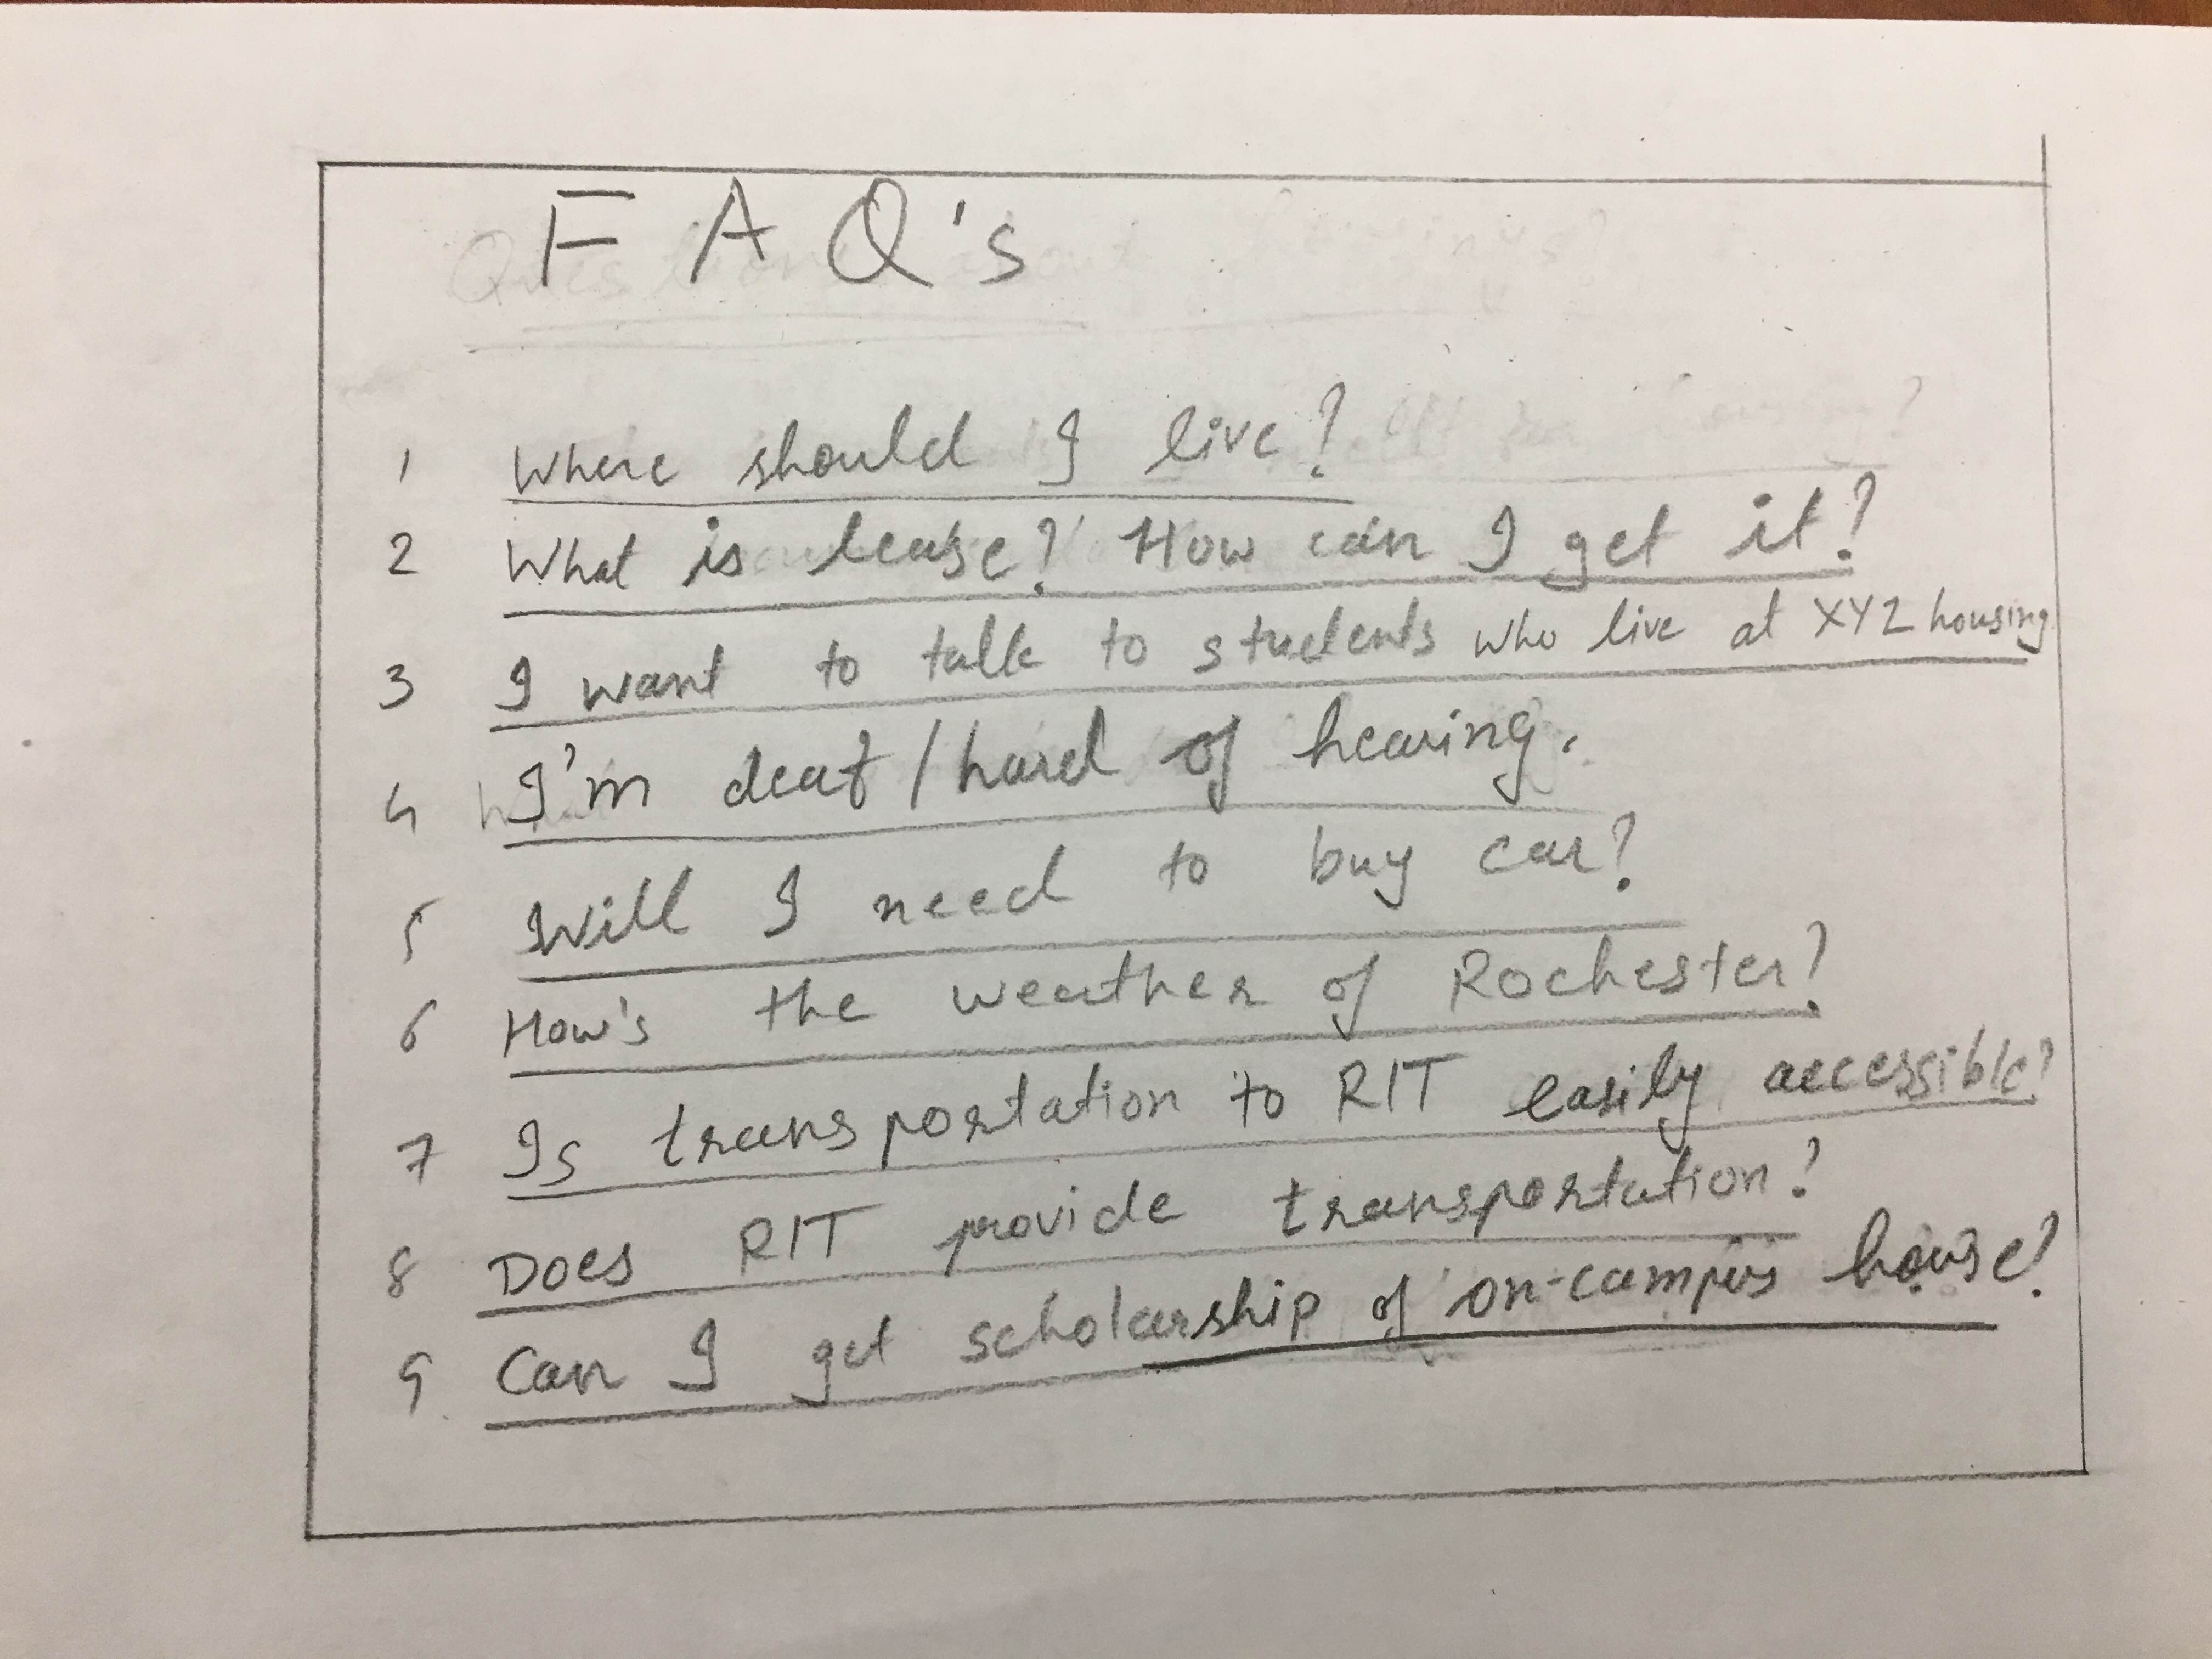 FAQ's
1 Where should I live?
2 What is lease? How can I get it?
3 I want to talk to students who live at XYZ housing
4 I'm deaf/hard of hearing.
5 Will I need to buy car?
6 How's the weather of Rochester?
7 Is transportation to RIT easily accessible?
8 Does RIT provide transportation?
9 Can I get scholarship of on-campus house?